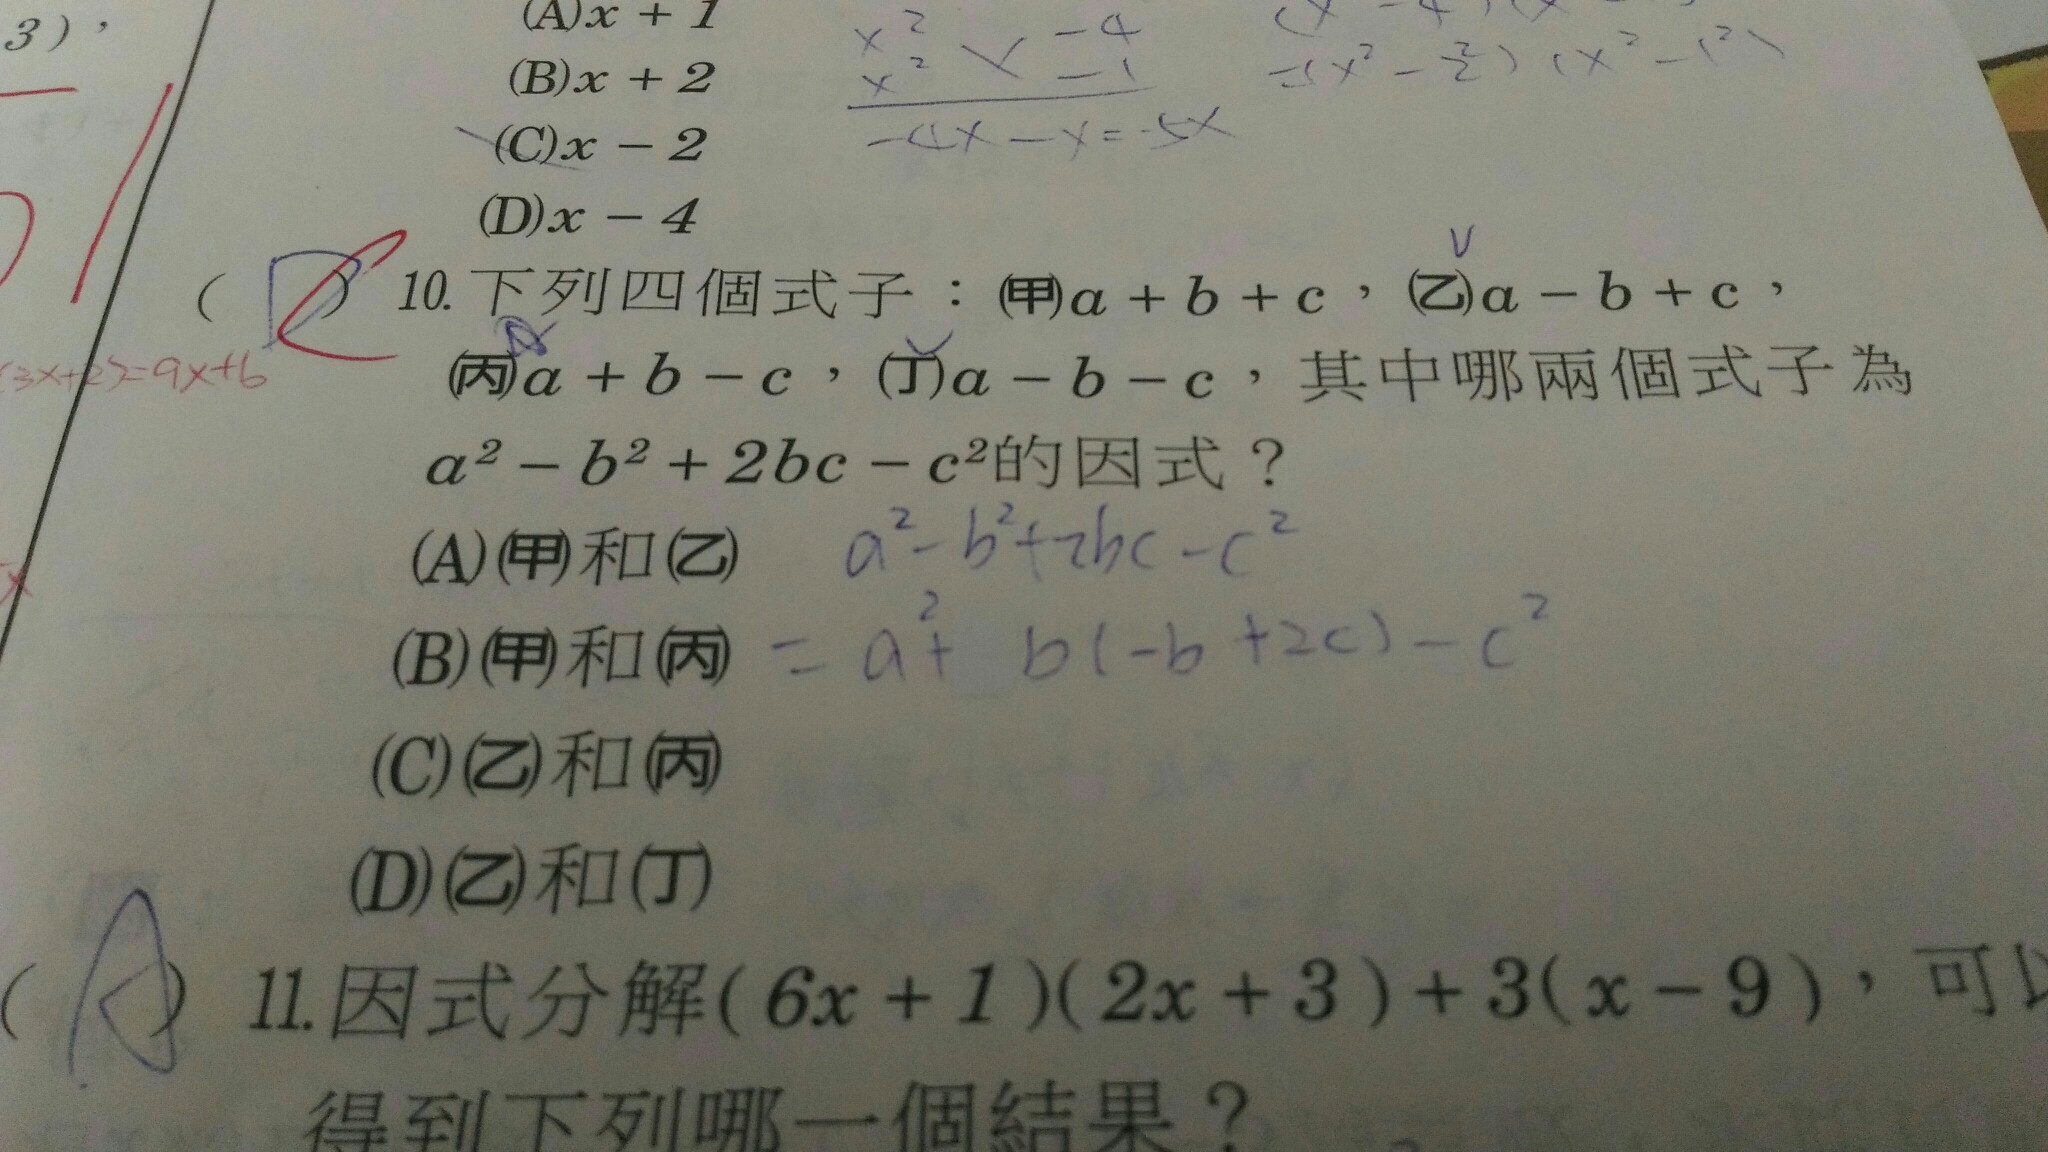 3），
(A)x + 1
(B)x + 2
(C)x − 2
(D)x − 4
x² −4
x² −1
−4x − x = −5x
(x² − 1²)
( D ) C 10. 下列四個式子：(甲)a + b + c，(乙)a − b + c，
(丙)a + b − c，(丁)a − b − c，其中哪兩個式子為
a² − b² + 2bc − c²的因式？
(3x+2)=9x+6
(A)(甲)和(乙) a²−b²+2bc−c²
(B)(甲)和(丙) = a²+ b(−b+2c)−c²
(C)(乙)和(丙)
(D)(乙)和(丁)
( A ) 11. 因式分解( 6x + 1 )( 2x + 3 ) + 3( x − 9 )，可以
得到下列哪一個結果？